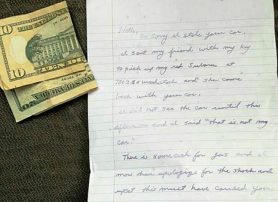 10
Hello,
So sorry I stole your car.
I sent my friend with my key
to pick up my red Subaru at
and she came
back with your car.
I did not see the car until this
afternoon and I said "that is not my
car."
There is some cash for gas and I
more than apologize for the shock and
upset this must have caused you.
10